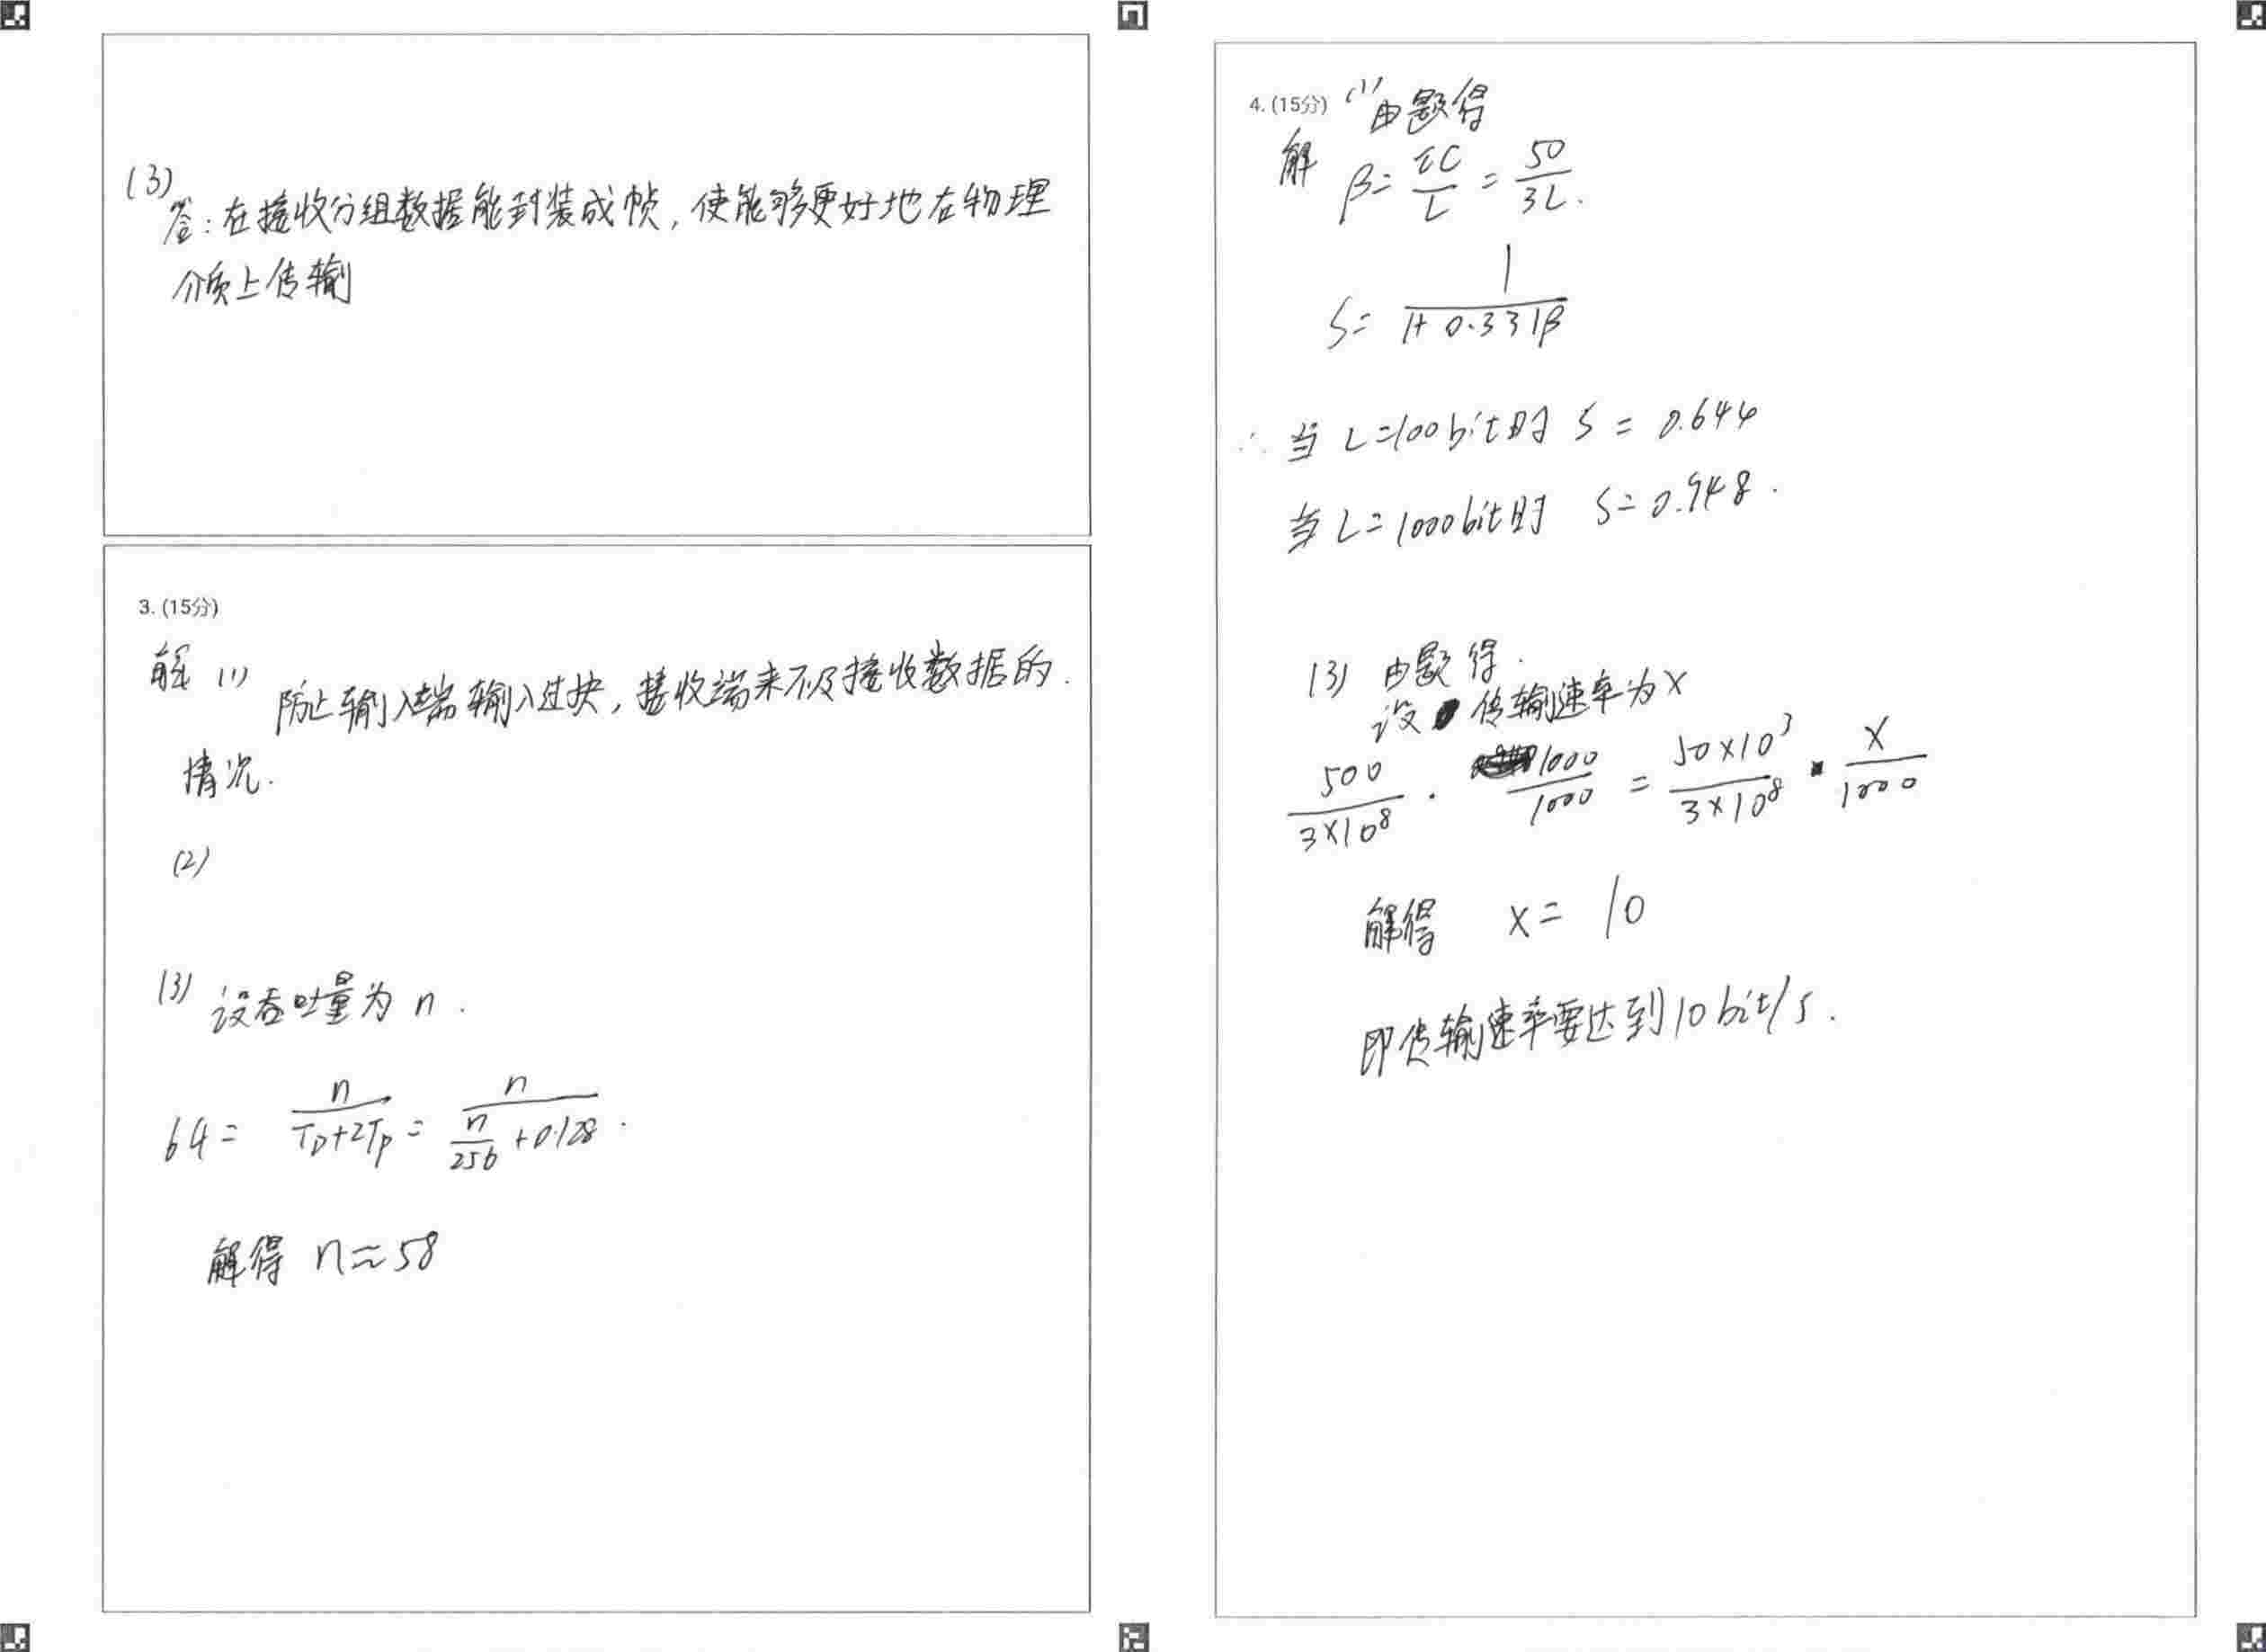 (3)
答:在接收分组数据能封装成帧,使能够更好地在物理
介质上传输
3. (15分)
解 (1) 防止输入端输入过快,接收端来不及接收数据的.
情况.
(2)
(3) 设吞吐量为 n .
64 = n/(T_D+2T_P) = n/(n/256 + 0.128) .
解得 n≈58
4. (15分) (1) 由题得
解 β= τC/L = 50/3L .
S= 1/(1+0.331β)
∴ 当 L=100bit时 S = 0.644
当 L=1000bit时 S=0.948 .
(3) 由题得 .
设 传输速率为 X
500/(3×10⁸) · 1000/1000 = 50×10³/(3×10⁸) · X/1000
解得 X= 10
即传输速率要达到10bit/s .